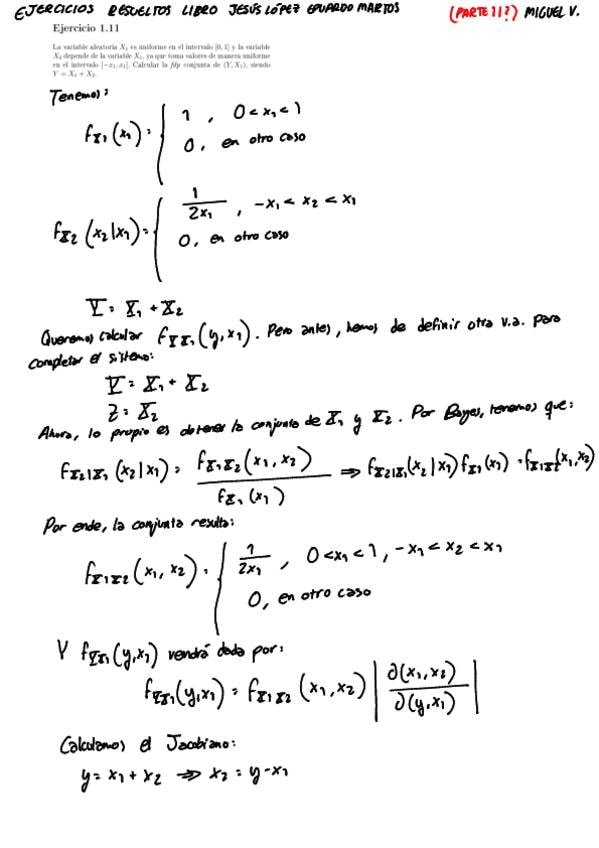 EJERCICIOS RESUELTOS LIBRO JESÚS LÓPEZ EDUARDO MARTOS (PARTE 1!?) MIGUEL V.
Ejercicio 1.11
La variable aleatoria X₁ es uniforme en el intervalo [0, 1] y la variable
X₂ depende de la variable X₁, ya que toma valores de manera uniforme
en el intervalo [−x₁, x₁]. Calcular la fdp conjunta de (Y, X₁), siendo
Y = X₁ + X₂.
Tenemos:
f_X₁(x₁) = { 1 , 0 < x₁ < 1
0, en otro caso
f_X₂(x₂|x₁) = { 1/2x₁ , -x₁ < x₂ < x₁
0, en otro caso
Y = X₁ + X₂
Queremos calcular f_YX₁(y,x₁). Pero antes, hemos de definir otra v.a. para
completar el sistema:
Y = X₁ + X₂
Z = X₂
Ahora, lo propio es obtener la conjunta de X₁ y X₂. Por Bayes, tenemos que:
f_X₂|X₁(x₂|x₁) = f_X₁X₂(x₁,x₂)/f_X₁(x₁) ⇒ f_X₂|X₁(x₂|x₁) f_X₁(x₁) = f_X₁X₂(x₁,x₂)
Por ende, la conjunta resulta:
f_X₁X₂(x₁,x₂) = { 1/2x₁ , 0 < x₁ < 1, -x₁ < x₂ < x₁
0, en otro caso
Y f_YX₁(y,x₁) vendrá dada por:
f_YX₁(y,x₁) = f_X₁X₂(x₁,x₂) |∂(x₁,x₂)/∂(y,x₁)|
Calculamos el Jacobiano:
y = x₁ + x₂ ⇒ x₂ = y - x₁